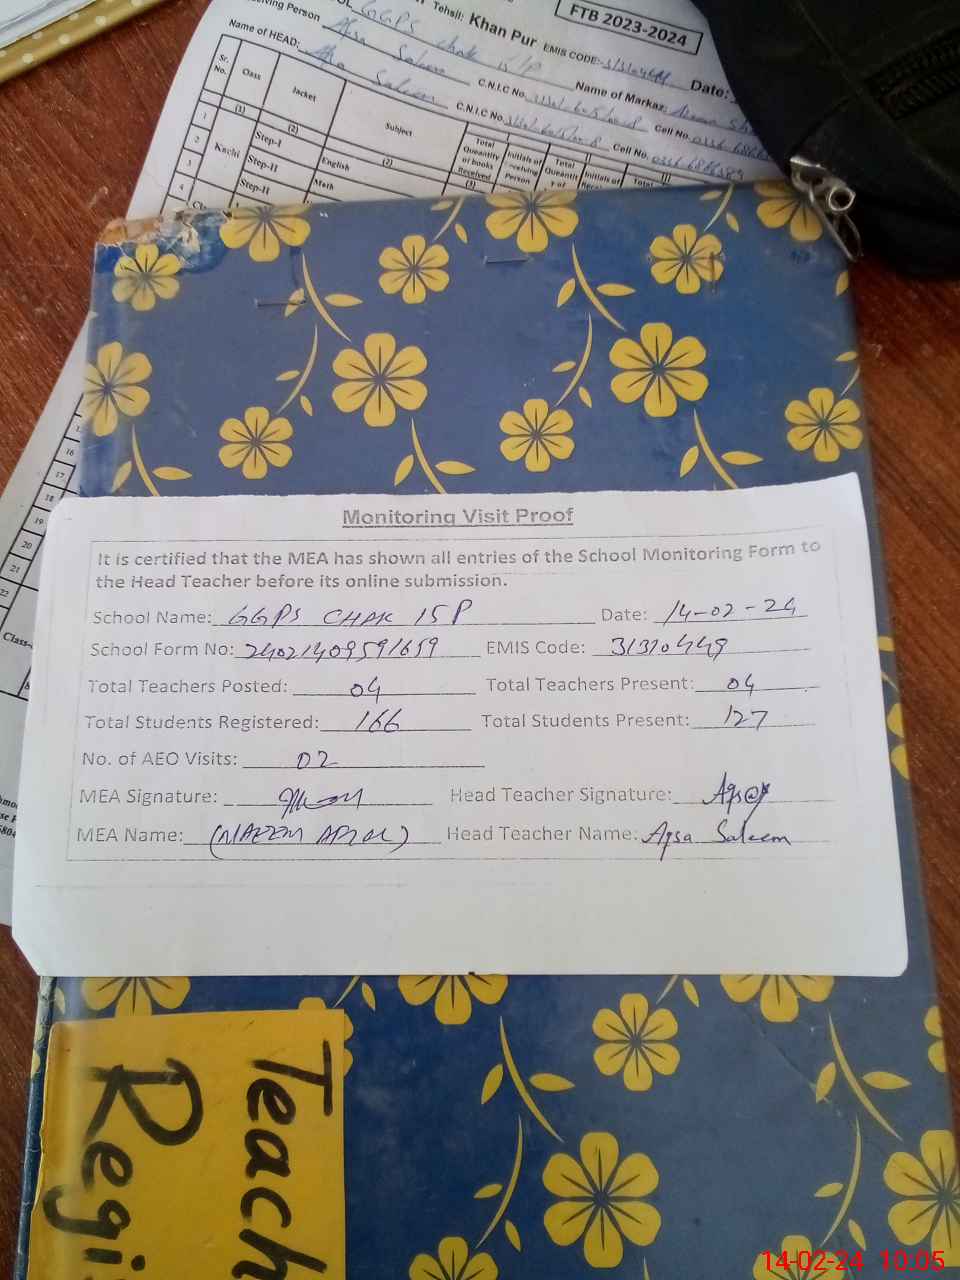 Tehsil: Khan Pur
FTB 2023-2024
Receiving Person Aqsa Saleem
GGPS chak 15/P
EMIS CODE:- Date:
Name of HEAD: Aqsa Saleem C.N.I.C No. Name of Markaz:
C.N.I.C No. Cell No.
Cell No.
Sr. No. Class Jacket Subject Total Quantity of books Received Initials of Receiving Person Total Initials of Total
(1) (2) (2) (3) II III
1 Kachi Step-I
2 Step-II English
3 Step-II Math
4
16
17
18
19
20
21
22
Class-
Monitoring Visit Proof
It is certified that the MEA has shown all entries of the School Monitoring Form to
the Head Teacher before its online submission.
School Name: GGPS CHAK 15P Date: 14-02-24
School Form No: 24021409591659 EMIS Code: 31310449
Total Teachers Posted: 04 Total Teachers Present: 04
Total Students Registered: 166 Total Students Present: 127
No. of AEO Visits: 02
MEA Signature: Head Teacher Signature: Aqs@
MEA Name: (NAEEM AFZAL) Head Teacher Name: Aqsa Saleem
Teach
Regis
14-02-24 10:05